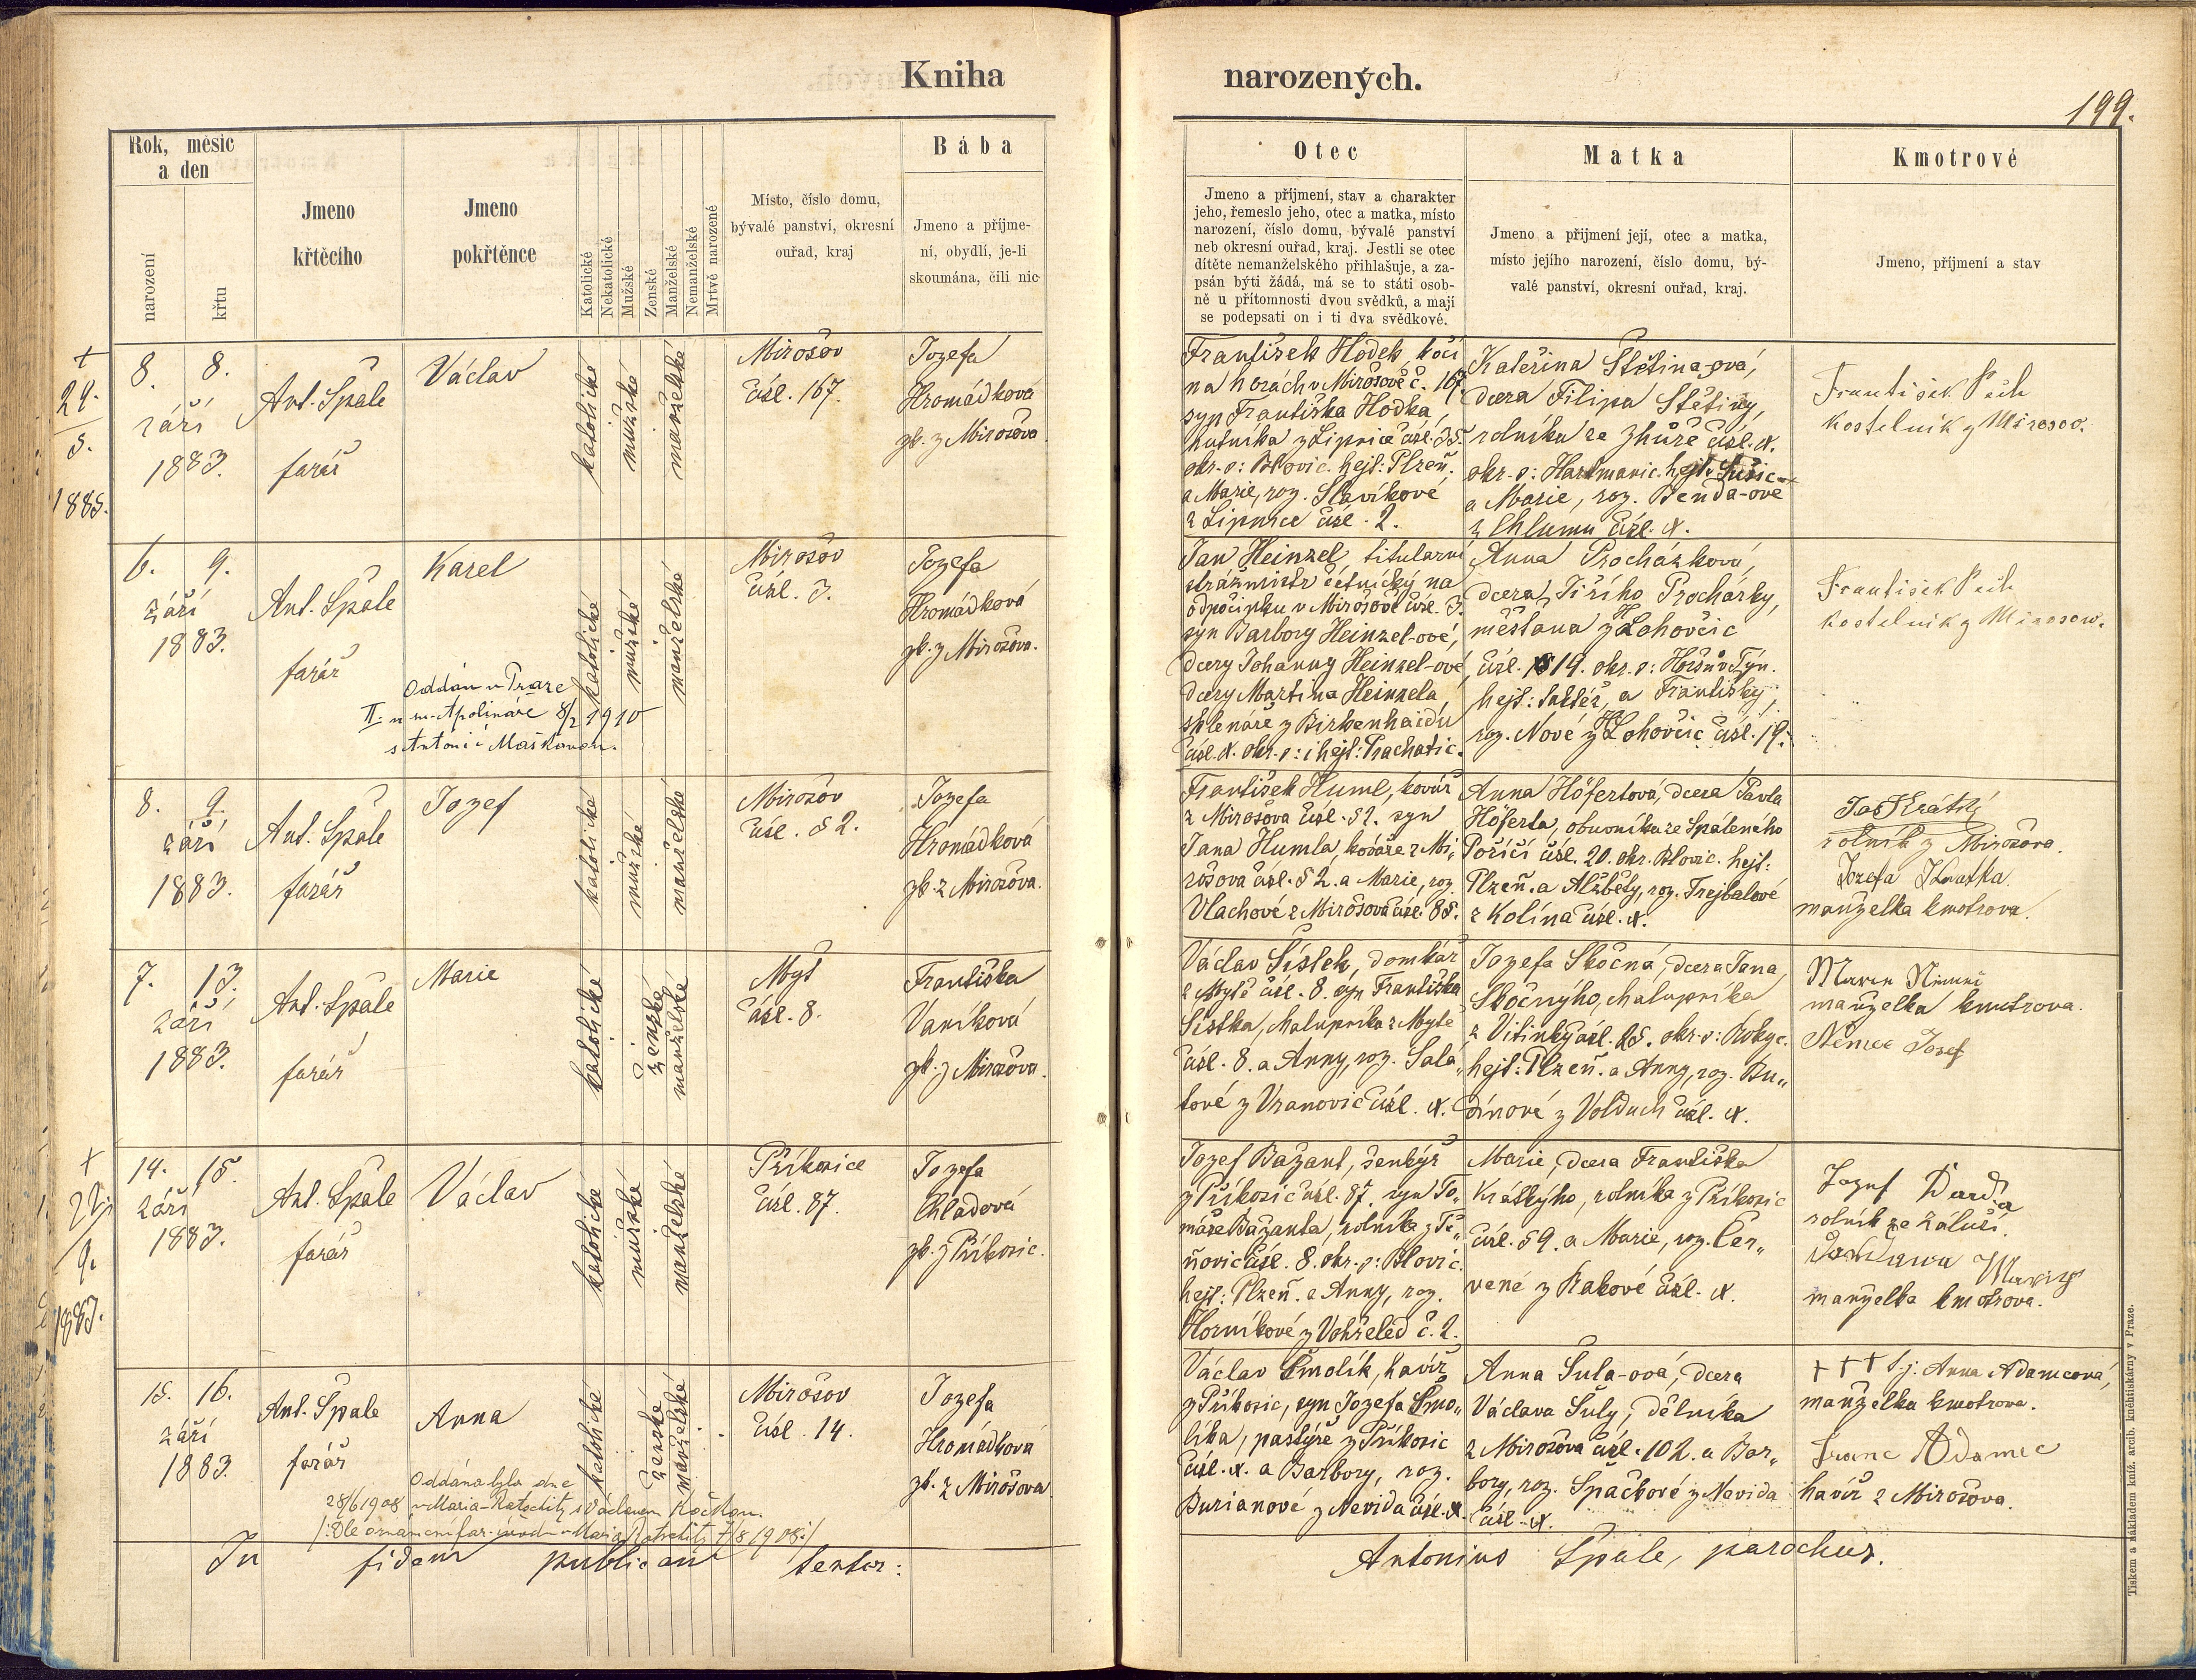 Kniha narozených.
199.
Rok, měsíc
a den
narození
křtu
Jmeno
křtěcího
Jmeno
pokřtěnce
Katolické
Nekatolické
Mužské
Ženské
Manželské
Nemanželské
Mrtvě narozené
Místo, číslo domu,
bývalé panství, okresní
ouřad, kraj
Bába
Jmeno a příjme-
ní, obydlí, je-li
skoumána, čili nic
Otec
Jmeno a příjmení, stav a charakter
jeho, řemeslo jeho, otec a matka, místo
narození, číslo domu, bývalé panství
neb okresní ouřad, kraj. Jestli se otec
dítěte nemanželského přihlašuje, a za-
psán býti žádá, má se to státi osob-
ně u přítomnosti dvou svědků, a mají
se podepsati on i ti dva svědkové.
Matka
Jmeno a přijmení její, otec a matka,
místo jejího narození, číslo domu, bý-
valé panství, okresní ouřad, kraj.
Kmotrové
Jmeno, příjmení a stav
+
24.
5.
1885.
8. 8.
září
1883.
Ant. Špale
farář
Václav
katolické
mužské
manželské
Mirošov
čísl. 167.
Jozefa
Hromádková
zk. z Mirošova
František Hodek, kočí
na horách v Mirošově č. 167.
syn Františka Hodka,
hutníka z Lipnice čísl. 35.
okr. o: Blovic. hejt: Plzeň.
a Marie, roz. Slavíkové
z Lipnice čísl. 2.
Kateřina Štětina-ová,
dcera Filipa Štětiny,
rolníka ze Zhůře čísl. N.
okr. o: Hartmanic. hejt: Sušic.
a Marie, roz. Benda-ové
z Chlumu čísl. N.
František Pech
kostelník z Mirosov.
6. 9.
září
1883.
Ant. Špale
farář
Karel
Oddán v Praze
II. u sv. Apolináře 8/2 1910
s Antonií Maškovou.
katolické
mužské
manželské
Mirošov
čísl. 3.
Jozefa
Hromádková
zk. z Mirošova.
Jan Heinzel, titularní
strážmistr četnický na
odpočinku v Mirošově čísl. 3.
syn Barbory Heinzel-ové,
dcery Johanny Heinzel-ové,
dcery Martina Heinzela
sklenáře z Birkenhaidu
čísl. N. okr. o: i hejt: Prachatic.
Anna Procházková,
dcera Jiřího Procházky,
měšťana z Lohovčic
čísl. 19. okr. o: Horšův Týn.
hejt: taktéž, a Františky,
roz. Nové z Lohovčic čísl. 19.
František Pech
kostelník z Mirosow.
8. 9.
září
1883.
Ant. Špale
farář
Jozef
katolické
mužské
manželské
Mirošov
čísl. 52.
Jozefa
Hromádková
zk. z Mirošova.
František Huml, kovář
z Mirošova čísl. 52. syn
Jana Humla, kováře z Mi„
rošova čísl. 52. a Marie, roz.
Vlachové z Mirošova čísl. 85.
Anna Höfertová, dcera Pavla
Höferta, obuvníka ze Spáleného
Poříčí čísl. 20. okr. Blovic. hejt:
Plzeň. a Alžběty, roz. Trejbalové
z Kolína čísl. N.
Jos Krátký
rolník z Mirošova.
Jozefa
manželka kmotrova.
7. 13.
září
1883.
Ant. Špale
farář
Marie
katolické
ženské
manželské
Myť
čísl. 8.
Františka
Vaníková
zk. z Mirošova.
Václav Šístek, domkář
z Mytě čísl. 8. syn Františka
Šístka, chalupníka z Mytě
čísl. 8. a Anny, roz. Sala„
tové z Vranovic čísl. N.
Jozefa Skočná, dcera Jana
Skočnýho, chalupníka
z Vitinky čísl. 25. okr. o: Rokyc.
hejt: Plzeň. a Anny, roz. Bu„
dínové z Volduch čísl. N.
manželka kmotrova.
Němec Josef
+
22
9.
1883.
14. 15.
září
1883.
Ant. Špale
farář
Václav
katolické
mužské
manželské
Příkosice
čísl. 87.
Jozefa
Chladová
zk. z Příkosic.
Jozef Bažant, šenkýř
z Příkosic čísl. 87. syn To„
máše Bažanta, rolníka z Ti„
ňovic čísl. 8. okr. o: Blovic.
hejt: Plzeň. a Anny, roz.
Horníkové z Vohřeled č. 2.
Marie, dcera Františka
Kráskýho, rolníka z Příkosic
čísl. 59. a Marie, roz. Čer„
vené z Rakové čísl. N.
Jozef
rolník ze Záluší.
manželka kmotrova.
15. 16.
září
1883.
Ant. Špale
farář
Anna
Oddána byla dne
28/6 1908 v Maria-Ratschitz s Václavem Kočkou.
/: Dle oznámení far. úřadu v Maria Ratschitz 7/8 1908 :/
katolické
ženské
manželské
Mirošov
čísl. 14.
Jozefa
Hromádková
zk. z Mirošova.
Václav Šmolík, havíř
z Příkosic, syn Jozefa Šmo„
líka, pastýře z Příkosic
čísl. N. a Barbory, roz.
Burianové z Nevida čísl. N.
Anna Šula-ová, dcera
Václava Šuly, dělníka
z Mirošova čísl. 102. a Bar„
bory, roz. Špačkové z Nevida
čísl. N.
+++ t. j. Anna Adamcová,
manželka kmotrova.
Franc Adamec
havíř z Mirošova.
In fidem publicam
Antonius Špale, parochus.
Tiskem a nákladem kníž. arcib. knihtiskárny v Praze.